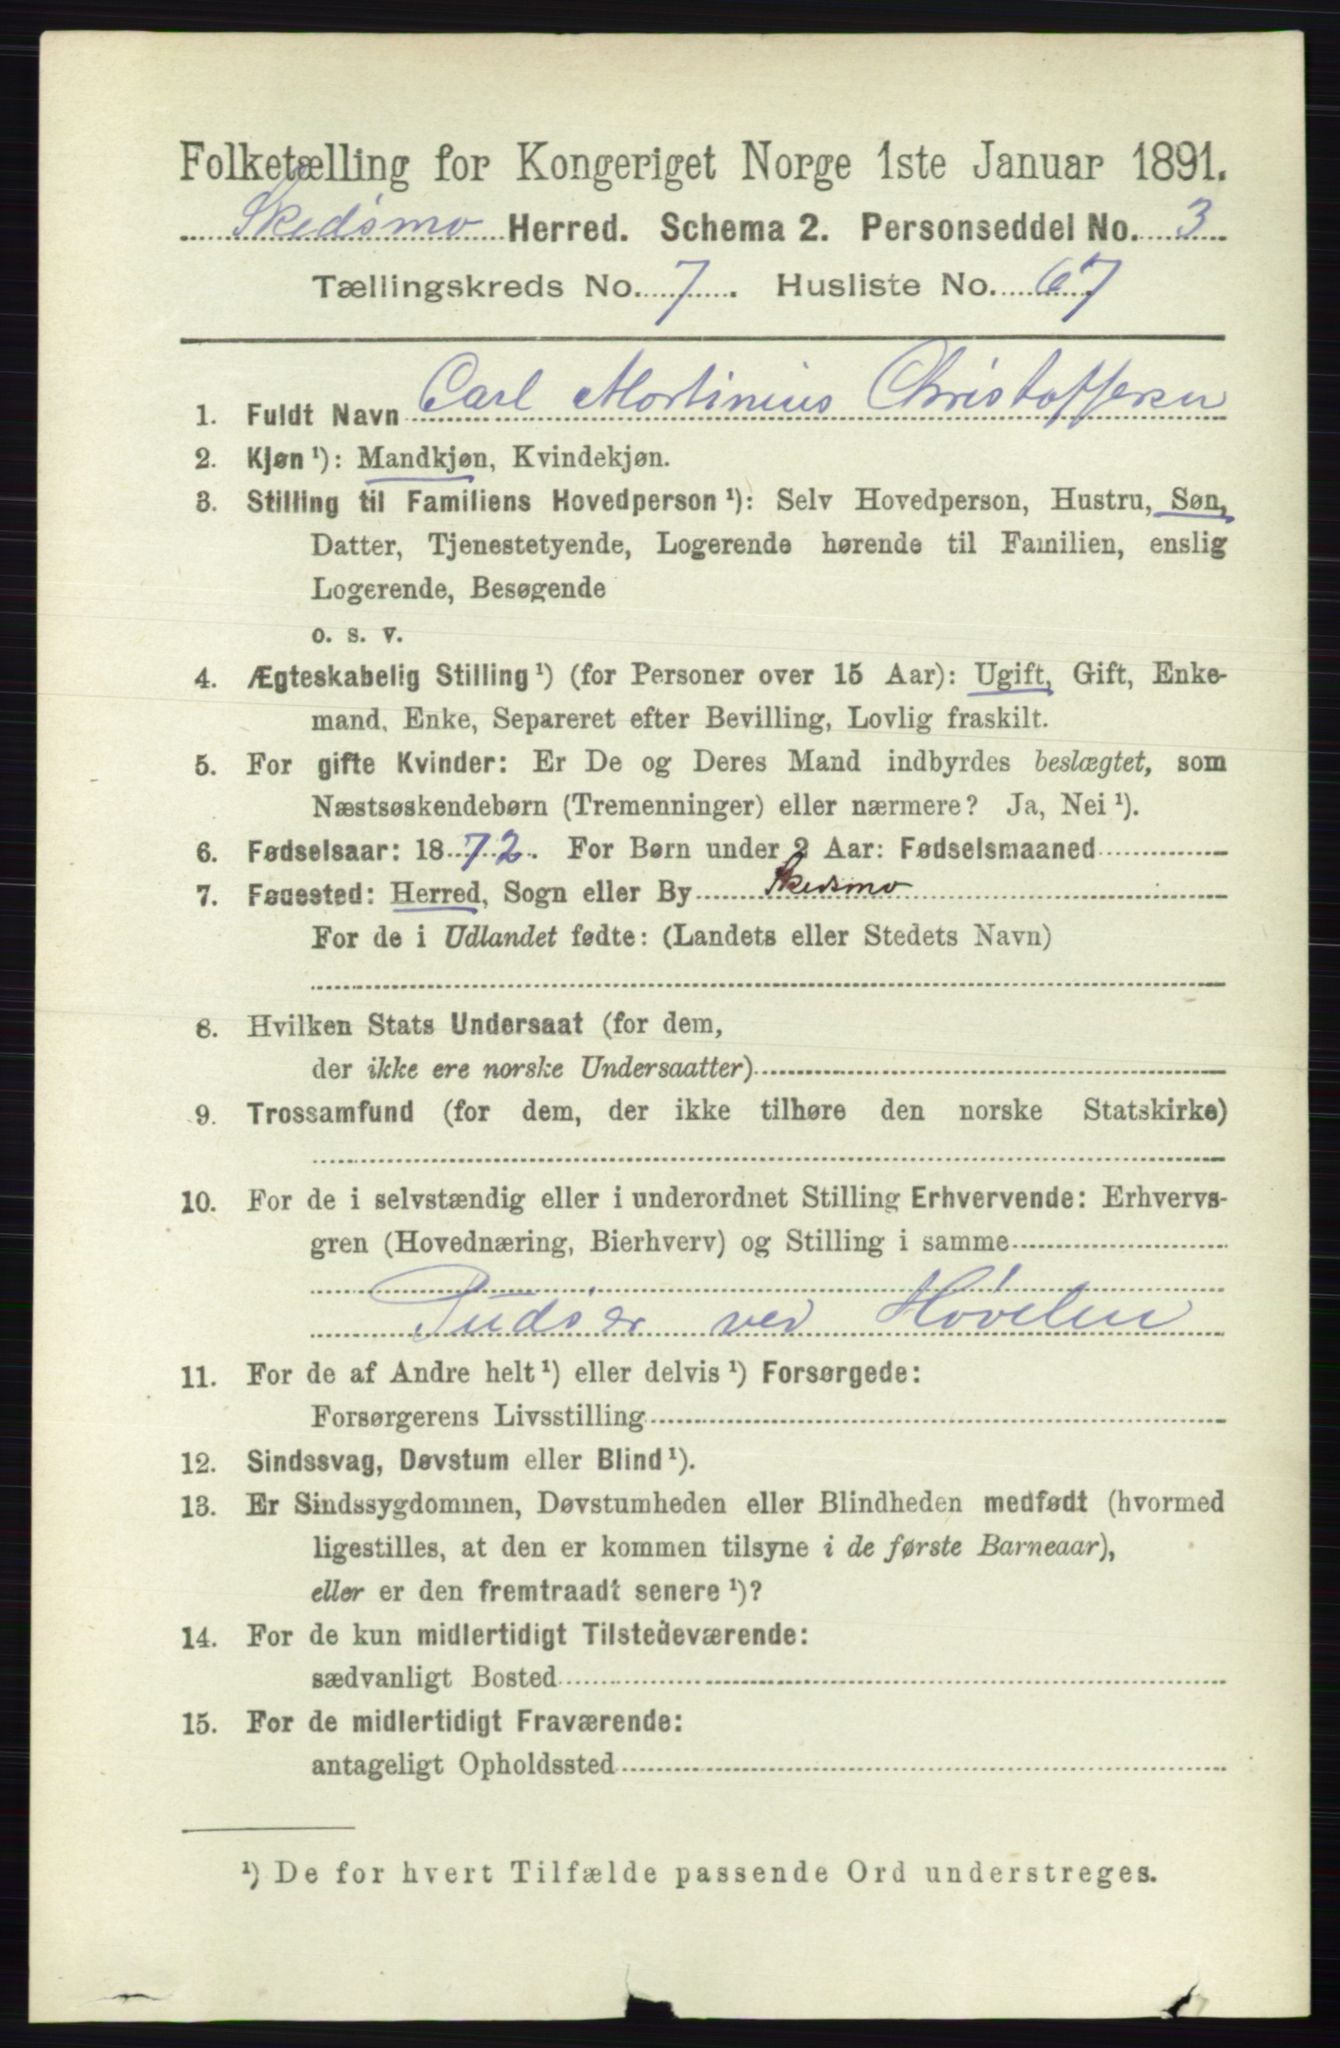 Folketælling for Kongeriget Norge 1ste Januar 1891.
Skedsmo Herred. Schema 2. Personseddel No. 3
Tællingskreds No. 7. Husliste No. 67
1. Fuldt Navn Carl Mortinius Christoffersen
2. Kjøn ¹): Mandkjøn, Kvindekjøn.
3. Stilling til Familiens Hovedperson ¹): Selv Hovedperson, Hustru, Søn,
Datter, Tjenestetyende, Logerende hørende til Familien, enslig
Logerende, Besøgende
o. s. v.
4. Ægteskabelig Stilling ¹) (for Personer over 15 Aar): Ugift, Gift, Enke-
mand, Enke, Separeret efter Bevilling, Lovlig fraskilt.
5. For gifte Kvinder: Er De og Deres Mand indbyrdes beslægtet, som
Næstsøskendebørn (Tremenninger) eller nærmere? Ja, Nei ¹).
6. Fødselsaar: 1872. For Børn under 2 Aar: Fødselsmaaned
7. Fødested: Herred, Sogn eller By Skedsmo
For de i Udlandet fødte: (Landets eller Stedets Navn)
8. Hvilken Stats Undersaat (for dem,
der ikke ere norske Undersaatter)
9. Trossamfund (for dem, der ikke tilhøre den norske Statskirke)
10. For de i selvstændig eller i underordnet Stilling Erhvervende: Erhvervs-
gren (Hovednæring, Bierhverv) og Stilling i samme
Pudser ved Høvelen
11. For de af Andre helt ¹) eller delvis ¹) Forsørgede:
Forsørgerens Livsstilling
12. Sindssvag, Døvstum eller Blind ¹).
13. Er Sindssygdommen, Døvstumheden eller Blindheden medfødt (hvormed
ligestilles, at den er kommen tilsyne i de første Barneaar),
eller er den fremtraadt senere ¹)?
14. For de kun midlertidigt Tilstedeværende:
sædvanligt Bosted
15. For de midlertidigt Fraværende:
antageligt Opholdssted
¹) De for hvert Tilfælde passende Ord understreges.